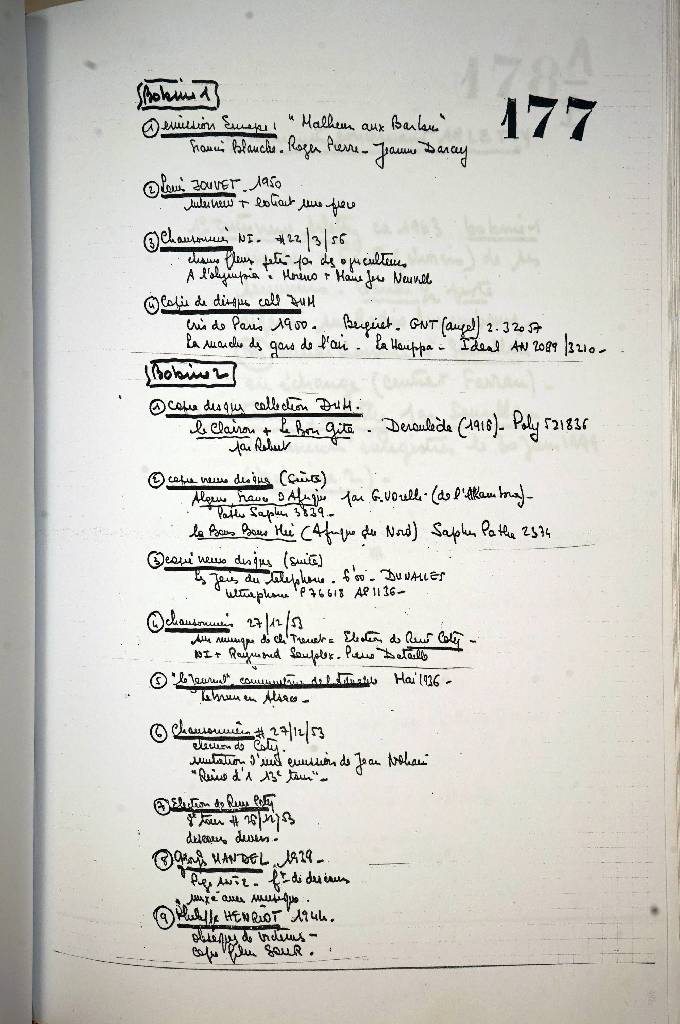 177
Bobine 1
① émission Europe 1 "Malheur aux Barbus"
Francis Blanche - Roger Pierre - Jeanne Darcey
② Louis JOUVET - 1950
interview + extrait une pièce
③ Chansonniers NI - #22/3/56
chou fleurs jetés par des agriculteurs
A l'olympia = Moreno + Marie José Neuville
④ Copie de disque coll DUM
cris de Paris 1900 - Bergeret - GNT (angel) 2.32057
La marche des gars de l'air - La Houppa - Ideal AN 2089/3210 -
Bobine 2
① copie disque collection DUM.
le Clairon + Le Bon Gite - Deroulède (1916) - Poly 521836
par Robert
② copie neuve disque (suite)
Algerie, France D'Afrique par G. Vorelli - (de l'Alhambra) -
Pathe Saphir 3839 -
(Afrique du Nord) Saphir Pathe 2374
③ copie neuve disques (suite)
Les Joies du téléphone - 6'00 - DUVALLES
ultraphone P76618 AP1136 -
④ chansonniers 27/12/53
sur musique de Ch Trenet = Election de René Coty -
NI + Raymond Souplex - Pierre Dataille
⑤ "le Journal" Mai 1936 -
Lebrun en Alsace -
⑥ Chansonniers # 27/12/53
election de Coty.
imitation d'une emission de Jean Nohain
"Reine d'1 13e tour" -
⑦ Election de René Coty
tour # 26/12/53
discours divers -
⑧ Georges MANDEL 1939 -
de discours
mixé avec musique.
⑨ Philippe HENRIOT 1944.
obsèques de victimes -
copie film SONR.